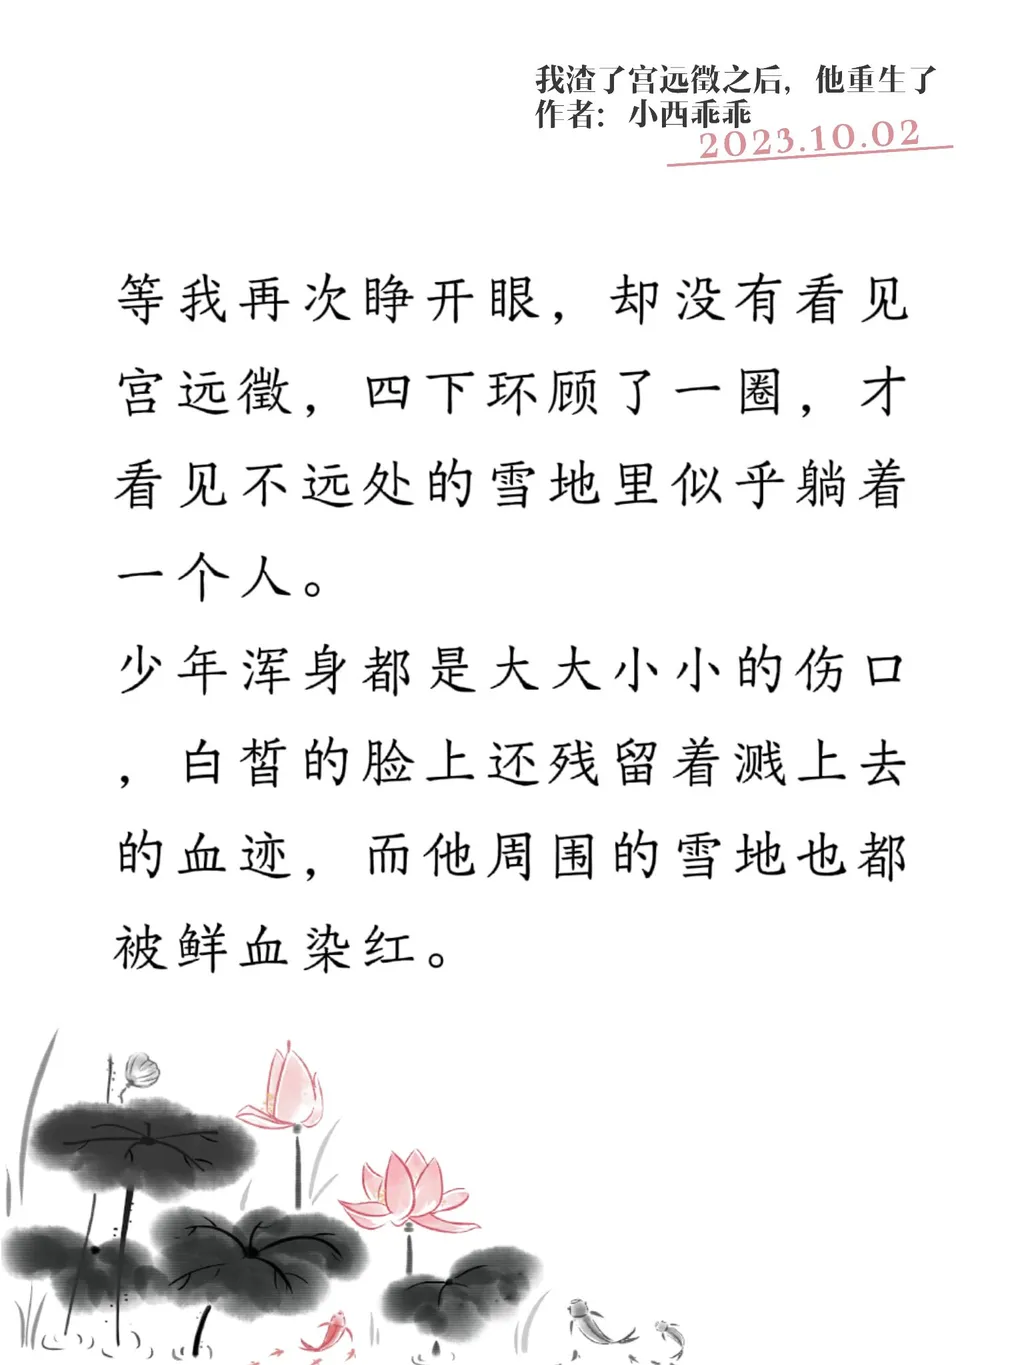 我渣了宫远徵之后，他重生了
作者：小西乖乖
2023.10.02
等我再次睁开眼，却没有看见
宫远徵，四下环顾了一圈，才
看见不远处的雪地里似乎躺着
一个人。
少年浑身都是大大小小的伤口
，白皙的脸上还残留着溅上去
的血迹，而他周围的雪地也都
被鲜血染红。